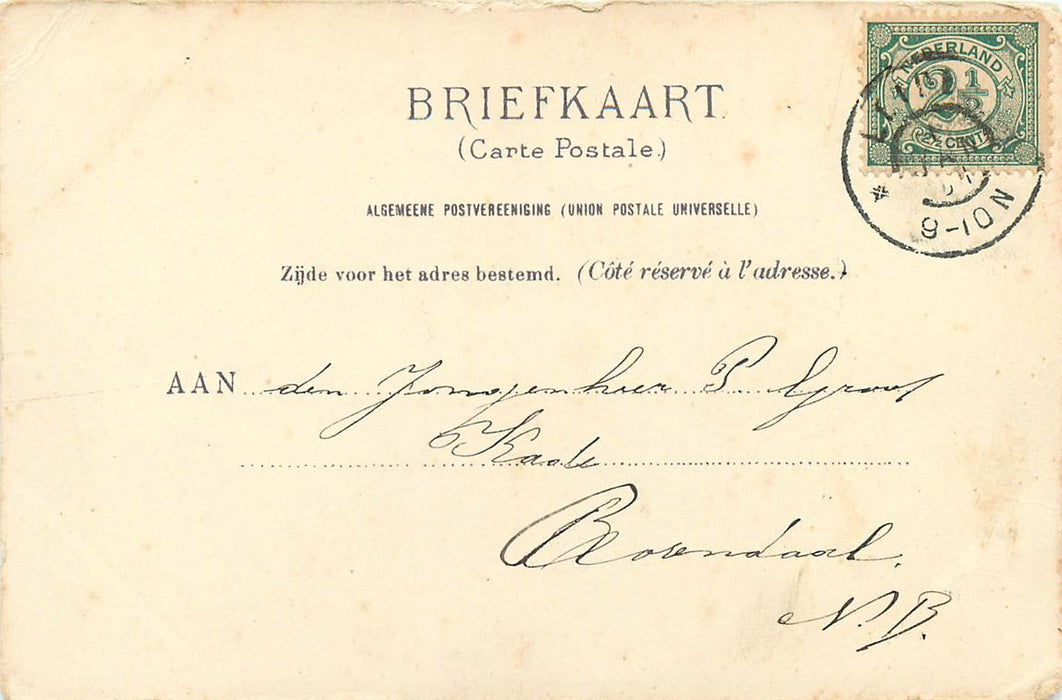 NEDERLAND
2 1/2
2½ CENT
8-10N
BRIEFKAART
(Carte Postale.)
ALGEMEENE POSTVEREENIGING (UNION POSTALE UNIVERSELLE)
Zijde voor het adres bestemd. (Côté réservé à l'adresse.)
AAN den Jongenheer P
Kade
Rosendaal.
N.B.